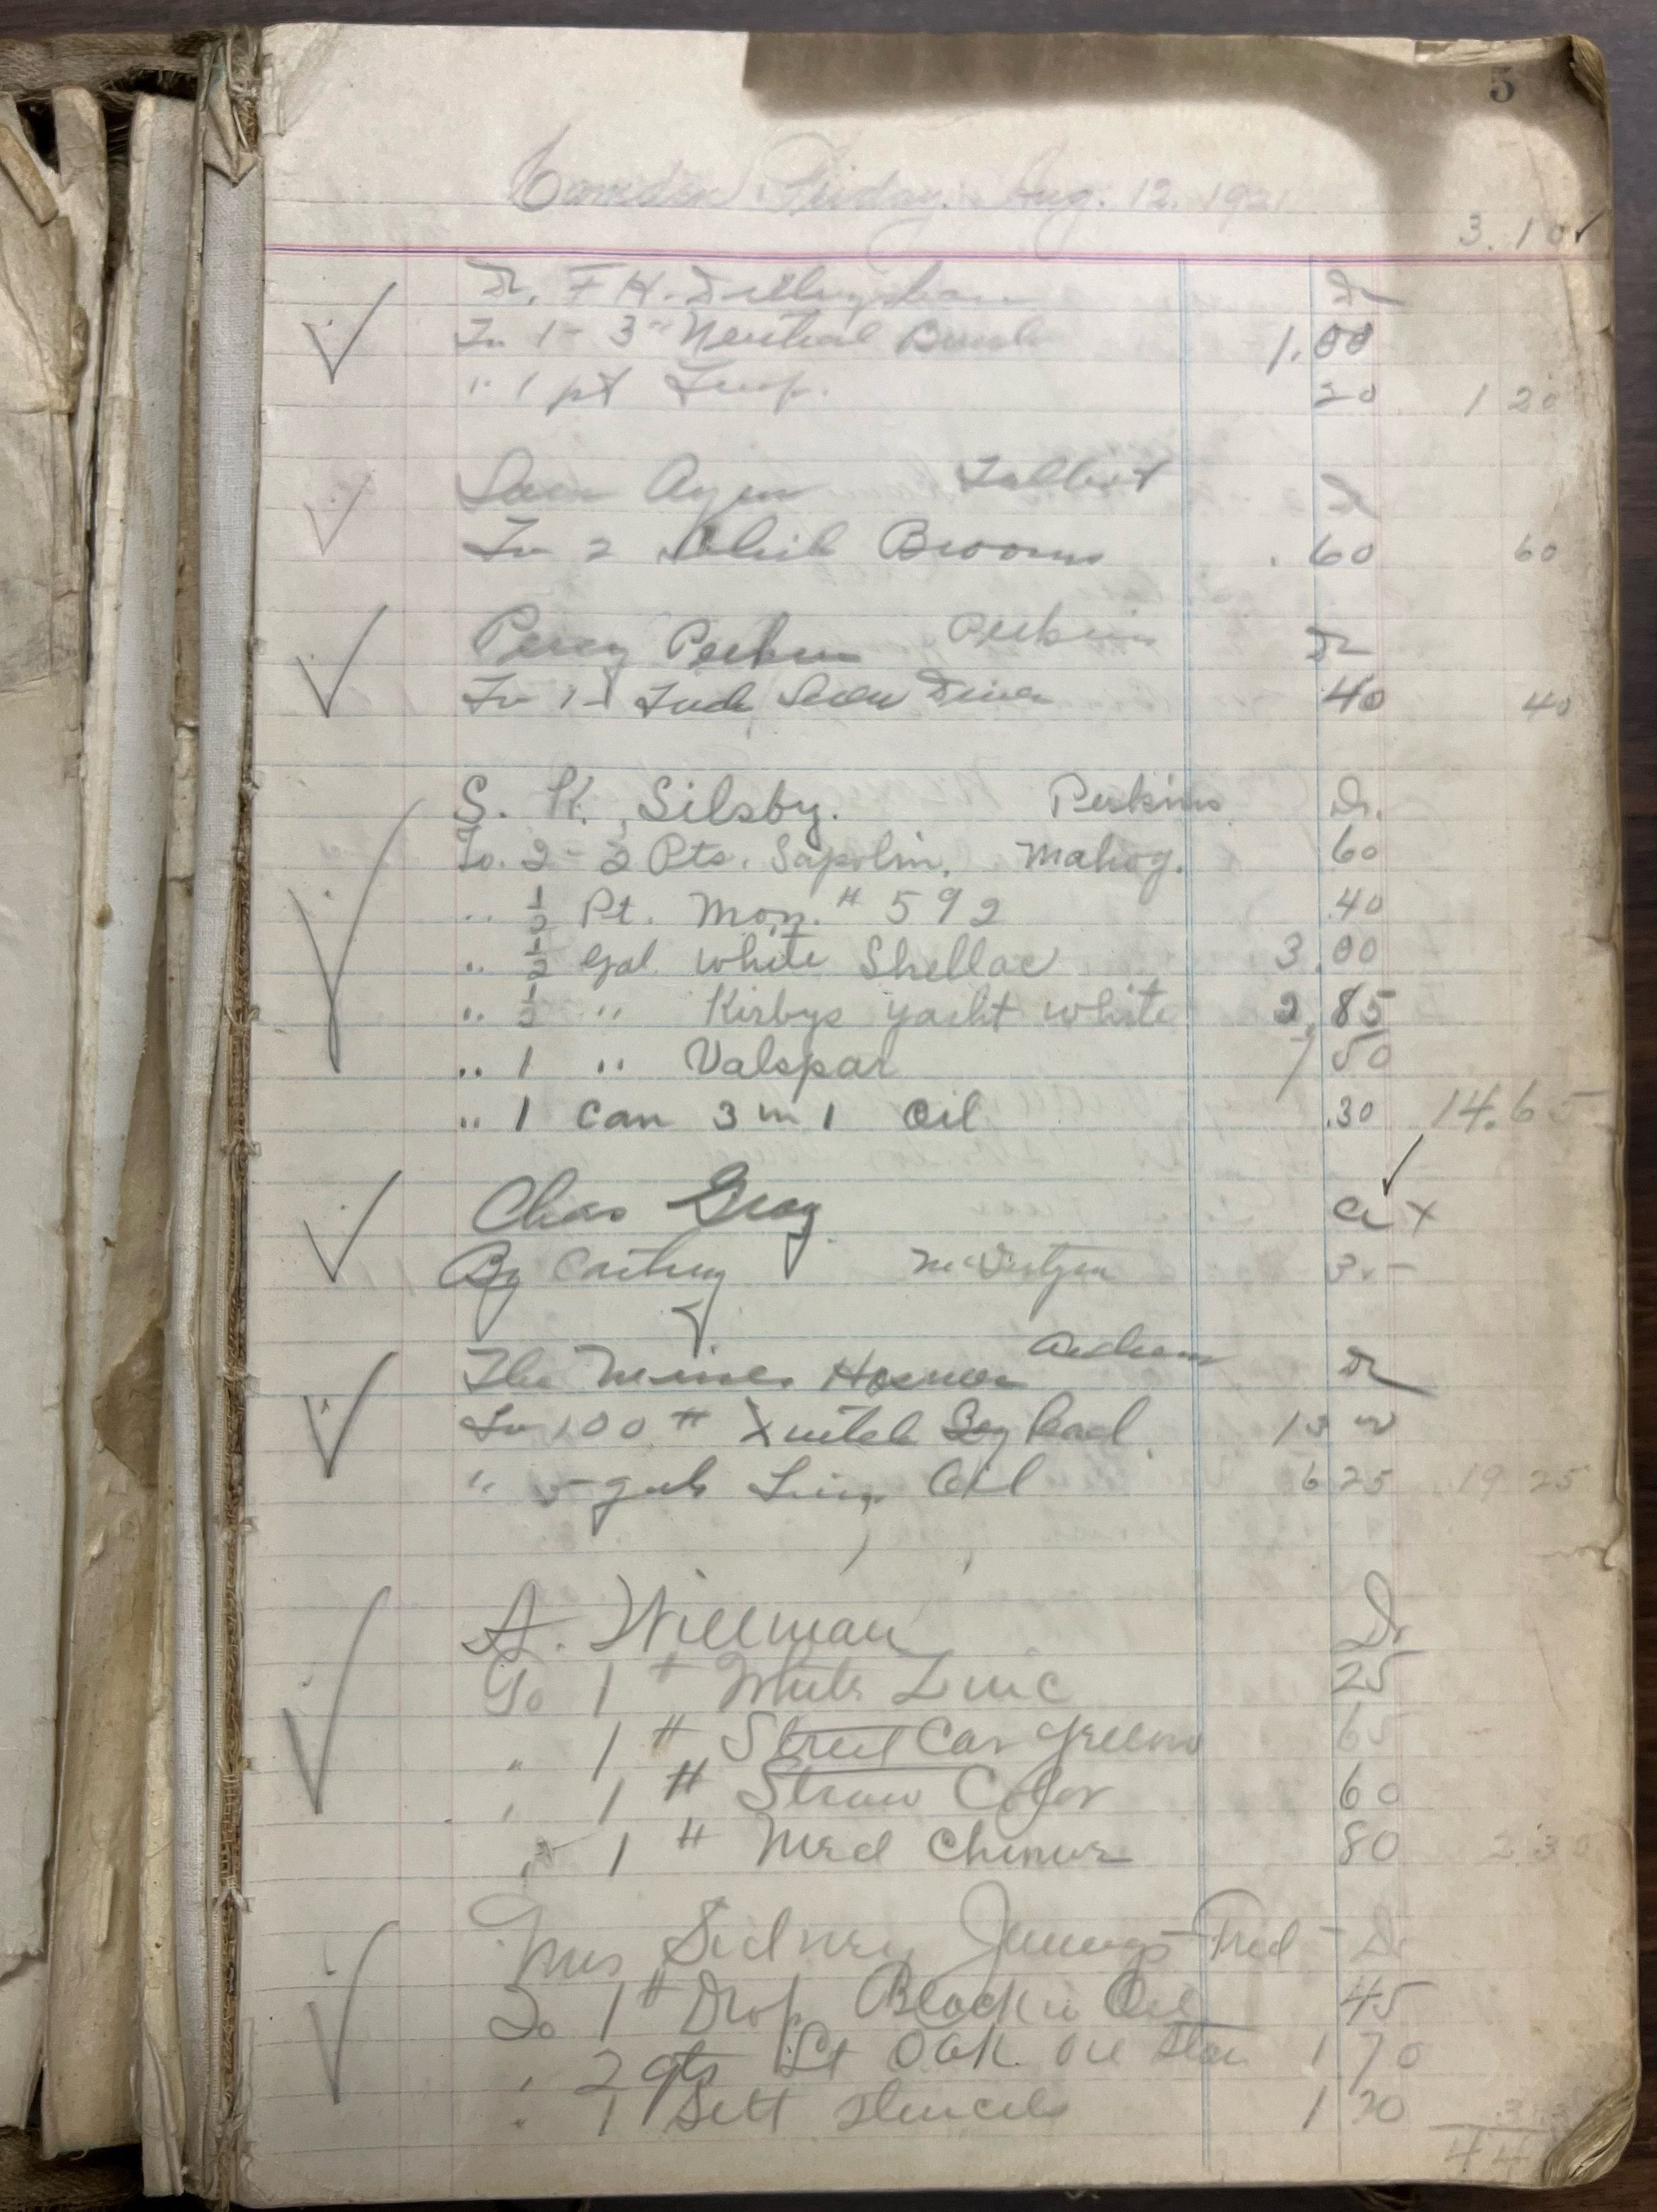 5
Camden Friday. Aug. 12. 1921
3.10
Dr. F H. Dillingham Dr
To 1 - 3" Neutral Brush 1.00
" 1 pt Turp. 20 1 20
Sam Ayer Talbot Dr
To 2 Whisk Brooms .60 60
Percy Perkins Perkins Dr
To 1 - Screw Driver .40 40
S. K. Silsby. Perkins Dr.
To. 2 - 2 Pts. Sapolin. Mahog. 60
" ½ Pt. Mon. # 592 .40
" ½ gal. White Shellac 3.00
" ½ " Kirbys yacht white 2.85
" 1 " Valspar 7 50
" 1 can 3 in 1 Oil .30 14.65
Chas Gray Cr x
By 3.-
The Misses Hosmer Dr
To 100 # Lead 13 00
" 5 gals Lins. Oil 6 25 19 25
A. Willman Dr
To 1 # White Zinc 25
" 1 # Street Car Yellow 65
" 1 # Straw Color 60
" 1 # Med Chrome 80 2.30
Mrs Sidney Jennings Fred - Dr
To 1 # Drop Black in Oil 45
" 2 qts Lt Oak Oil Stain 1 70
" 1 Sett Stencils 1 20